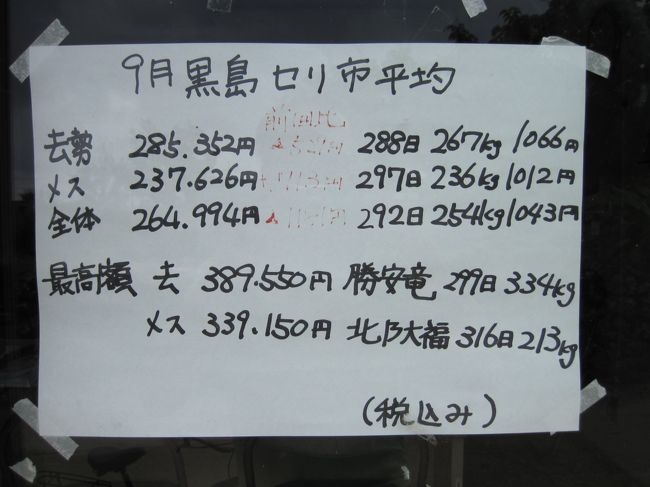 9月黒島セリ市平均
前回比
去勢 285.352円 288日 267kg 1066円
メス 237.626円 297日 236kg 1012円
全体 264.994円 292日 254kg 1043円
最高額 去 389.550円 勝安竜 299日 334kg
メス 339.150円 北乃大福 316日 213kg
(税込み)